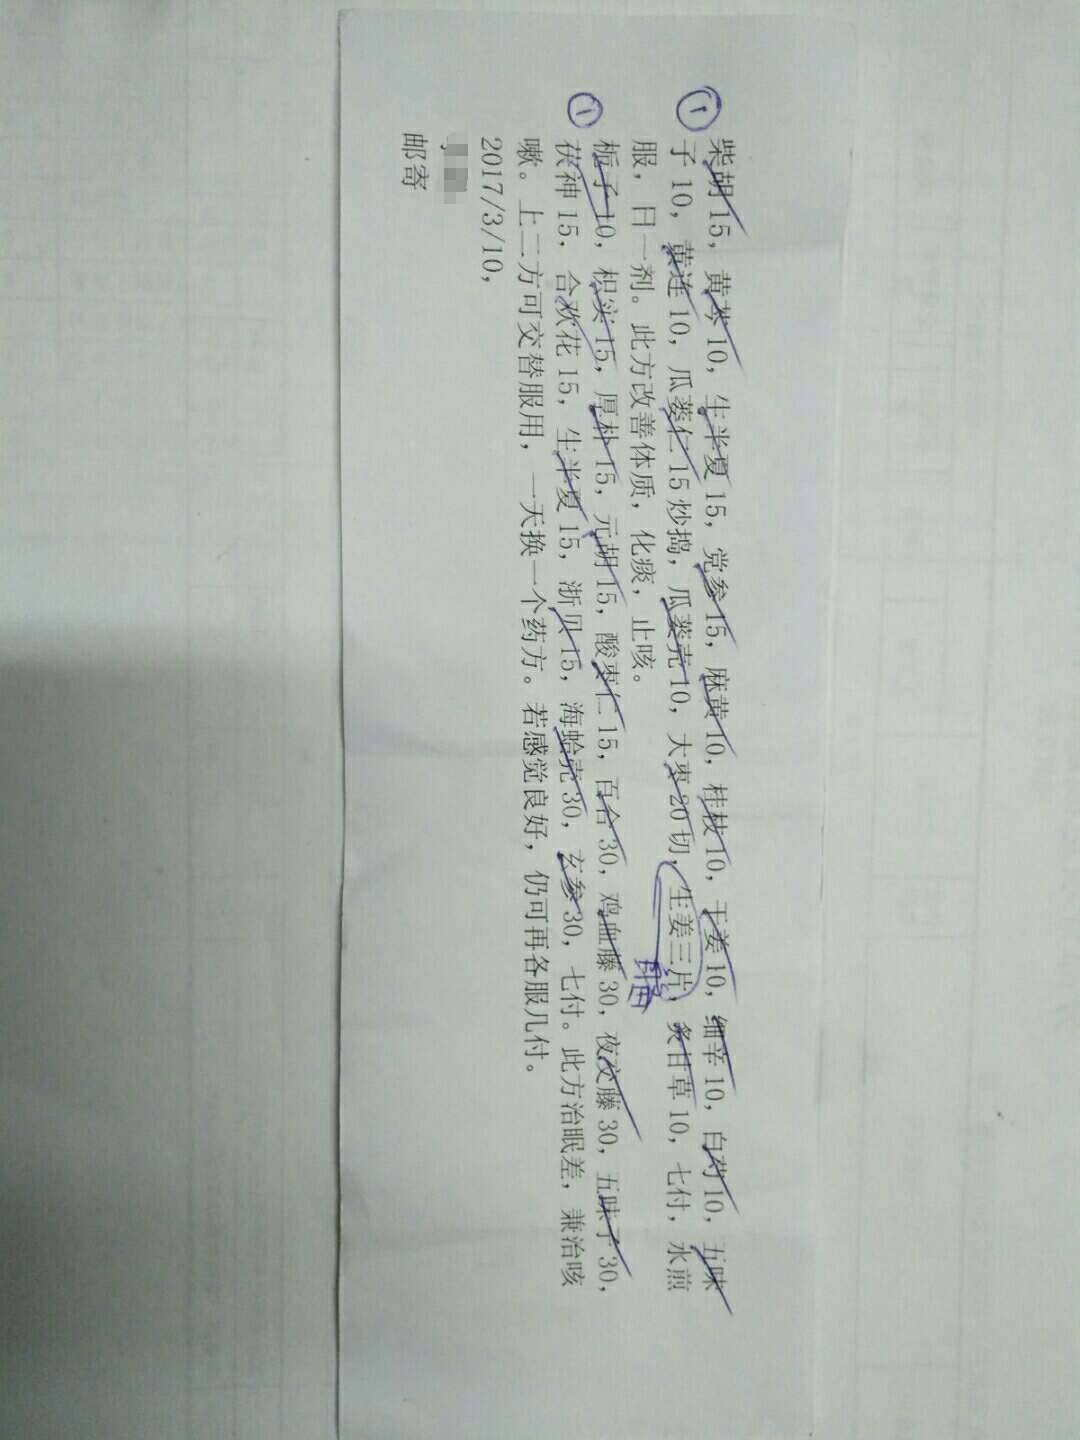 ① 柴胡 15，黄芩 10，生半夏 15，党参 15，麻黄 10，桂枝 10，干姜 10，细辛 10，白芍 10，五味
子 10，黄连 10，瓜蒌仁 15 炒捣，瓜蒌壳 10，大枣 20 切，生姜三片，炙甘草 10，七付，水煎
服，日一剂。此方改善体质，化痰，止咳。
① 栀子 10，枳实 15，厚朴 15，元胡 15，酸枣仁 15，百合 30，鸡血藤 30，夜交藤 30，五味子 30，
茯神 15，合欢花 15，生半夏 15，浙贝 15，海蛤壳 30，玄参 30，七付。此方治眠差，兼治咳
嗽。上二方可交替服用，一天换一个药方。若感觉良好，仍可再各服几付。
2017/3/10，
邮寄